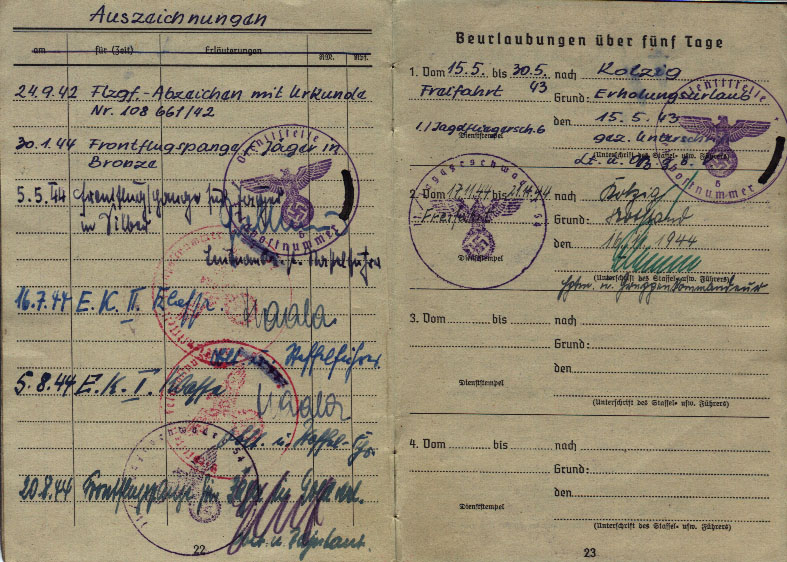 Auszeichnungen
am für (Zeit) Erläuterungen
24.9.42 Flzgf.-Abzeichen mit Urkunde
Nr. 108 661/42
30.1.44 Frontflugspange f. Jäger in
Bronze
5.5.44 Frontflugspange für Jäger
in Silber
Leutnant u. Staffelführer
16.7.44 E.K. II. Klasse.
Nagler
u. Staffelführer
5.8.44 E.K. I. Klasse
Nagler
u. Staffel-
20.8.44 Frontflugspange für Jäger in Gold
u. Adjutant.
22
Beurlaubungen über fünf Tage
1. Vom 15.5. bis 30.5. nach Kolzig
Freifahrt 43 Grund: Erholungsurlaub
den 15.5.43
1./Jagdfliegersch.6 gez. Unterschrift
Dienststempel (Unterschrift des Staffel- usw. Führers)
Lt. u.
Dienststelle
Feldpostnummer
2. Vom 17.11.44 bis 21.11.44 nach Kolzig
Freifahrt Grund:
den 1944
Dienststempel (Unterschrift des Staffel- usw. Führers)
Hptm. u. Gruppenkommandeur
3. Vom bis nach
Grund:
den
Dienststempel (Unterschrift des Staffel- usw. Führers)
4. Vom bis nach
Grund:
den
Dienststempel (Unterschrift des Staffel- usw. Führers)
23